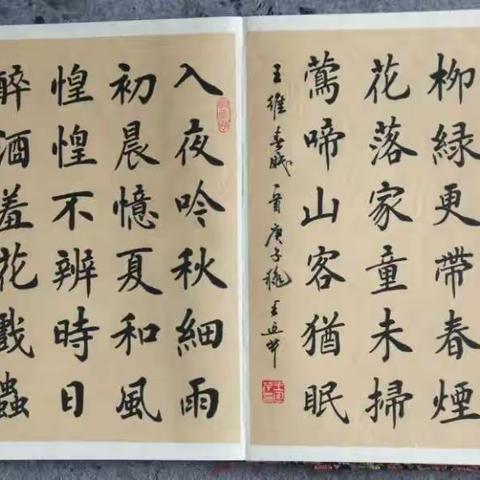 柳綠更帶春煙
花落家童未掃
鶯啼山客猶眠
王維春眠一首庚子秋王延
入夜吟秋細雨
初晨憶夏和風
惶惶不辨時日
醉酒羞花戲蟲